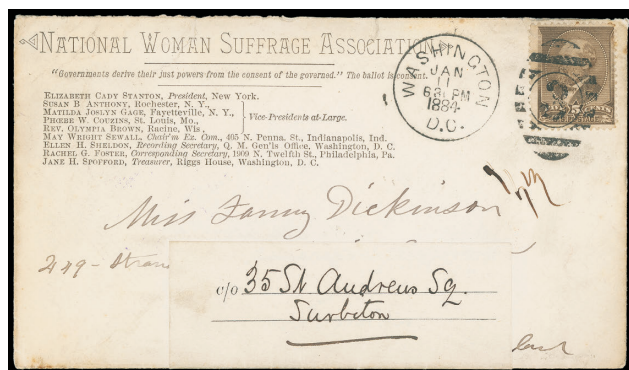 NATIONAL WOMAN SUFFRAGE ASSOCIATION
"Governments derive their just powers from the consent of the governed." The ballot is consent.
ELIZABETH CADY STANTON, President, New York.
SUSAN B ANTHONY, Rochester, N. Y.,
MATILDA JOSLYN GAGE, Fayetteville, N. Y.,
PHŒBE W. COUZINS, St. Louis, Mo.,
REV. OLYMPIA BROWN, Racine, Wis.,
Vice-Presidents at-Large.
MAY WRIGHT SEWALL, Chair'n Ex. Com., 405 N. Penna. St., Indianapolis, Ind.
ELLEN H. SHELDON, Recording Secretary, Q. M. Gen'ls Office, Washington, D. C.
RACHEL G. FOSTER, Corresponding Secretary, 1909 N. Twelfth St., Philadelphia, Pa.
JANE H. SPOFFORD, Treasurer, Riggs House, Washington, D. C.
WASHINGTON
JAN
11
630 PM
1884
D.C.
2
CENTS
Miss Fanny Dickinson
449 - Stran
c/o 35 St Andrews Sq.
Surbiton